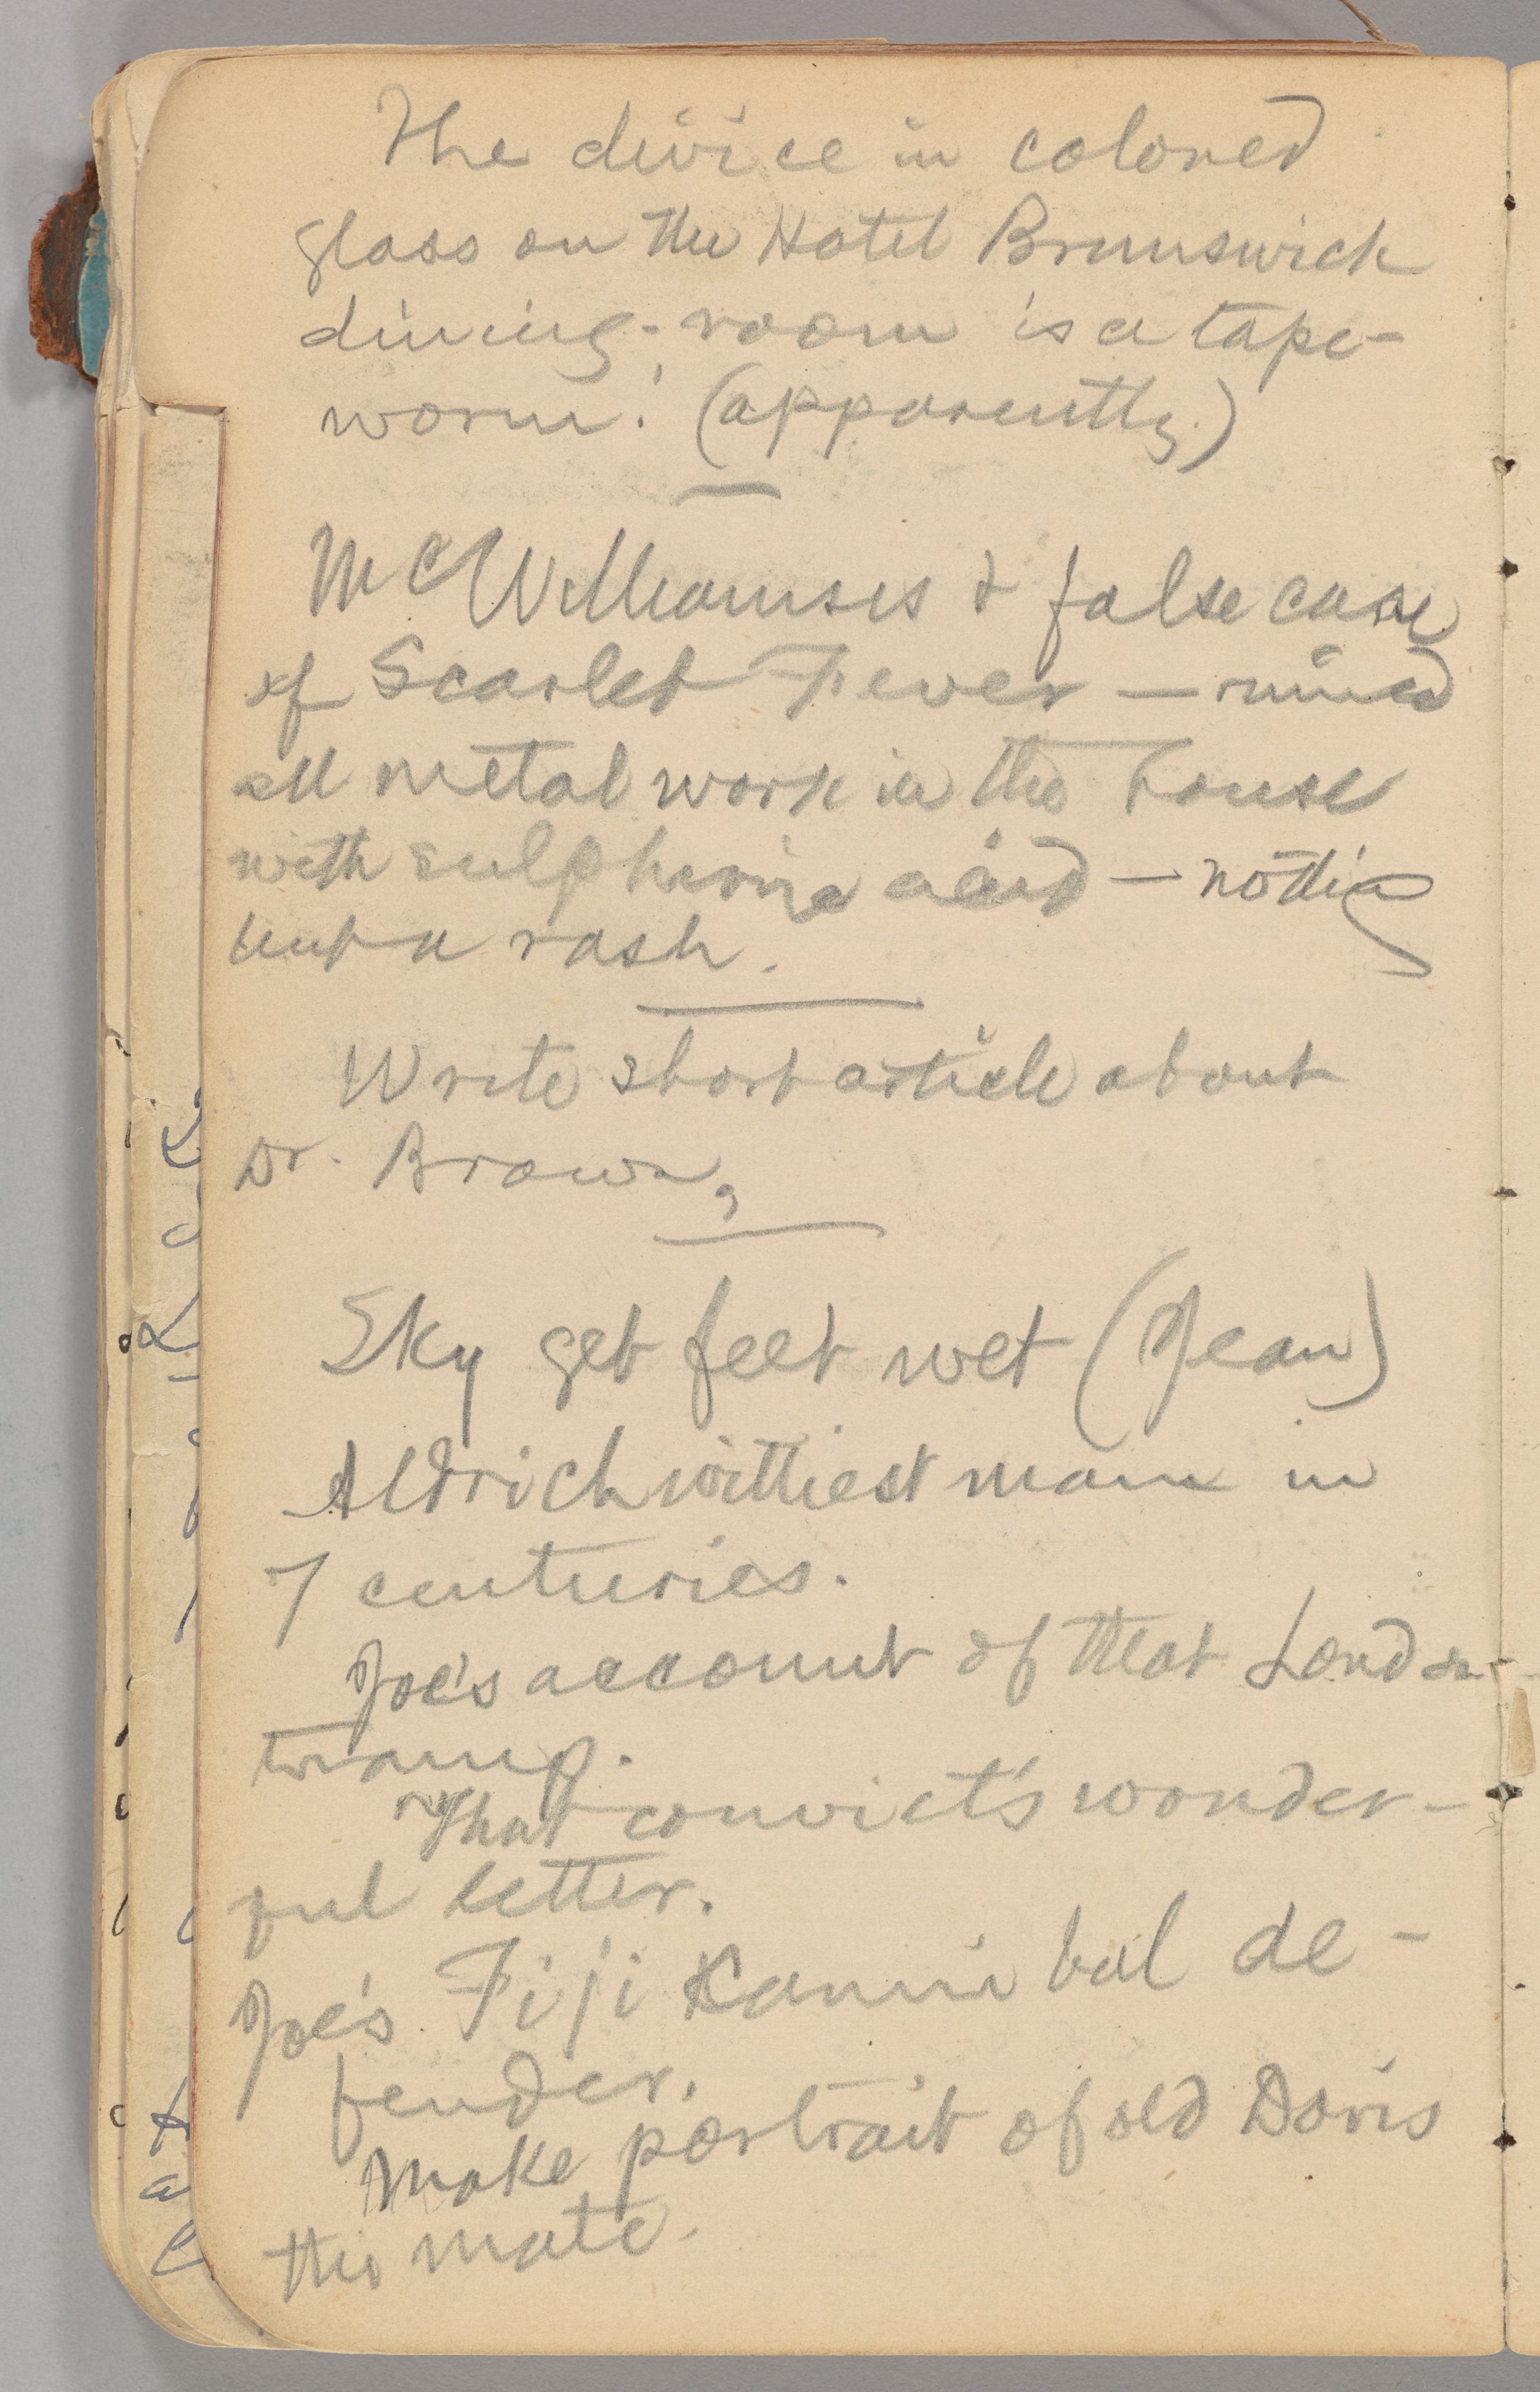 The divice in colored
glass on the Hotel Brunswick
dining-room is a tape-
worm! (apparently.)
McWilliamses & false case
of Scarlet Fever — ruined
all metal work in the house
with sulphuric acid — nothing
but a rash.
Write short article about
Dr. Brown,
Sky get feet wet (Jean)
Aldrich wittiest man in
7 centuries.
Joe's account of that London
tramp.
That convict's wonder-
ful letter.
Joe's Fiji Kannibal de-
fender.
Make portrait of old Davis
the mate.